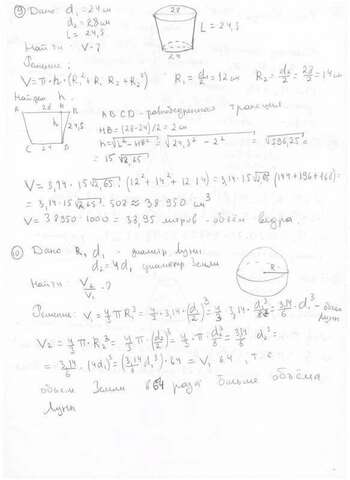 9) Дано: d₁ = 24 см
d₂ = 28 см
L = 24,5
Найти: V - ?
Решение:
28
L = 24,5
24
V = π·h·(R₁² + R₁ R₂ + R₂²) R₁ = d₁/2 = 12 см R₂ = d₂/2 = 28/2 = 14 см
Найдем h.
28 H
h 24,5
C 24 D
ABCD - равнобедренная трапеция
HB = (28-24)/2 = 2 см
h = √(L² - HB²) = √(24,5² - 2²) = √596,25 =
= 15√2,65
V = 3,14·15√2,65·(12² + 14² + 12·14) = 3,14·15√2,65·(144+196+168) =
= 3,14·15√2,65·508 ≈ 38 950 см³
V = 38950:1000 = 38,95 литров - объём ведра.
10) Дано: R₁, d₁ - диаметр Луны
d₂ = 4d₁ диаметр Земли
Найти: V₂/V₁ - ?
R
Решение: V₁ = 4/3 π R³ = 4/3·3,14·(d₁/2)³ = 4/3·3,14·d₁³/8 = 3,14/6·d₁³ - объём Луны
V₂ = 4/3 π·R₂³ = 4/3 π·(d₂/2)³ = 4/3·π·d₂³/8 = 3,14/6 d₂³ =
= 3,14/6·(4d₁)³ = (3,14/6 d₁³)·64 = V₁ 64, т.е.
объем Земли в 64 раза больше объёма
Луны